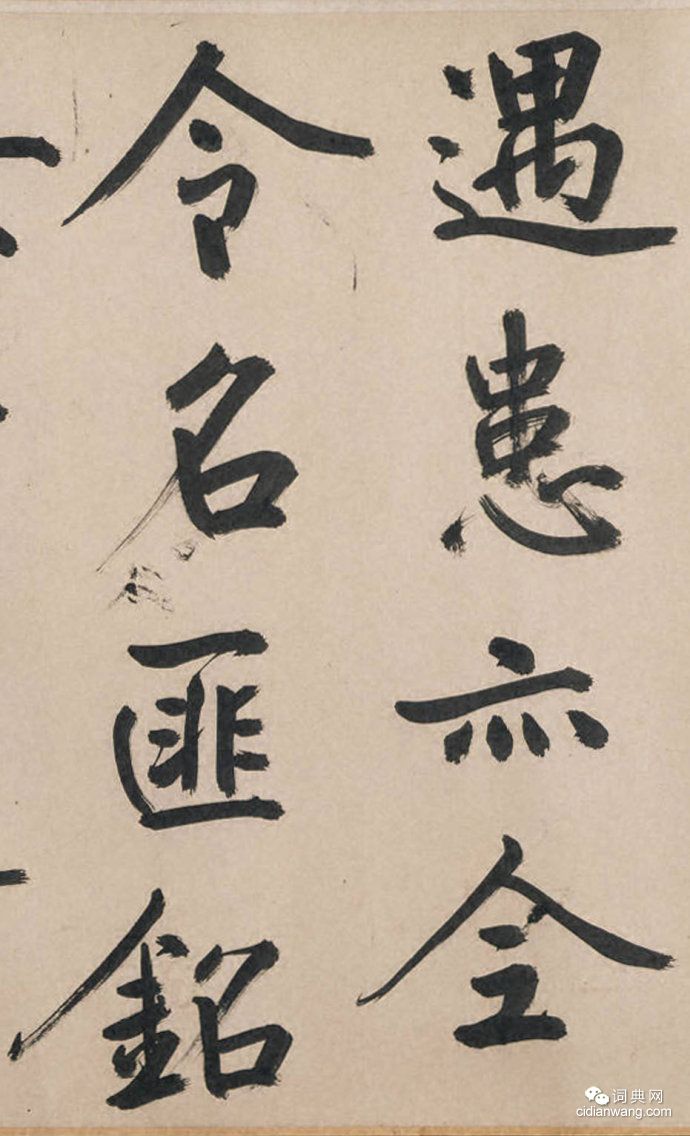 遇患亦全
令名匪銘
词典网
cidianwang.com